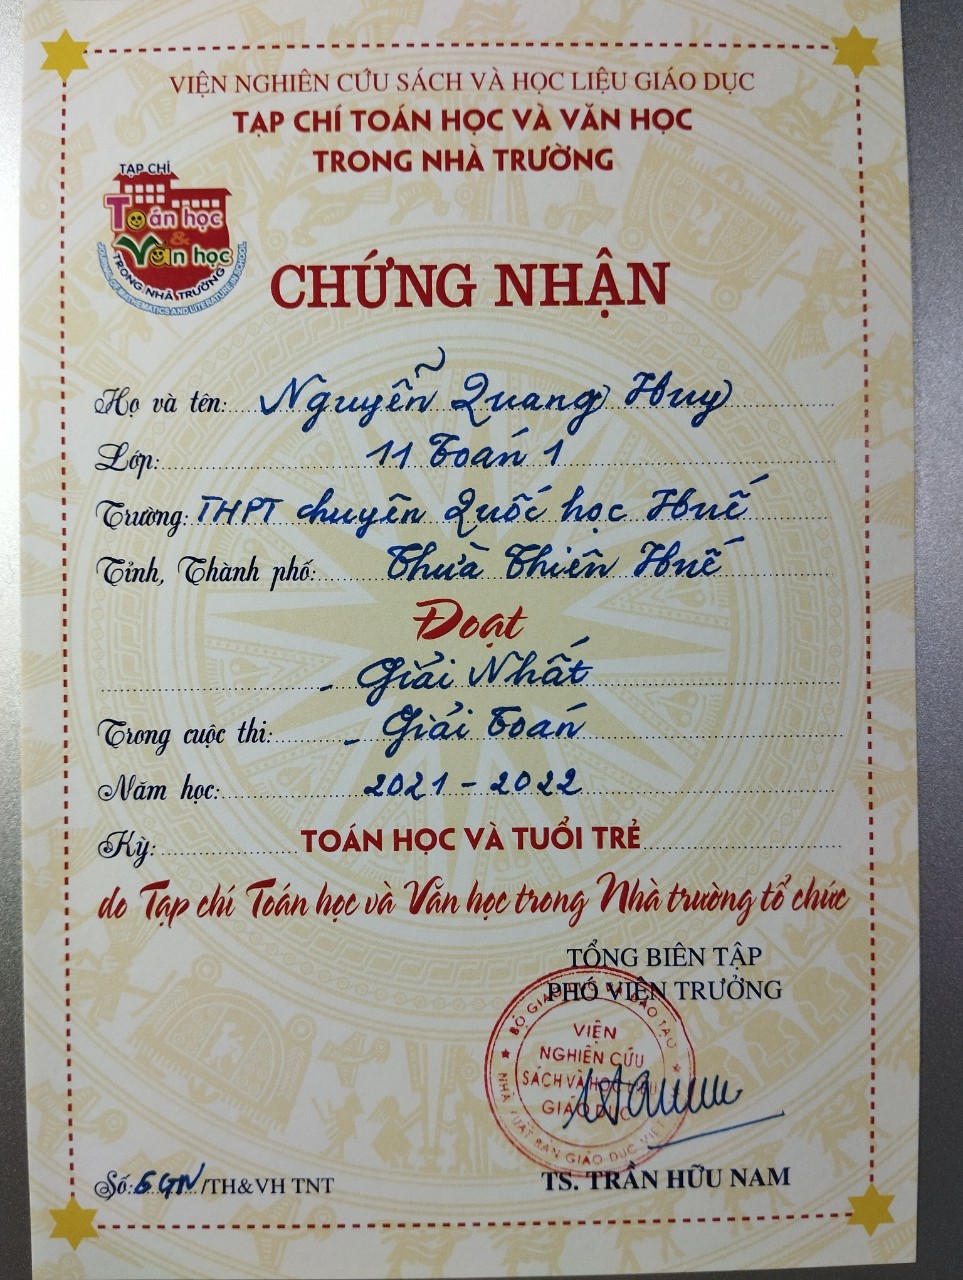 VIỆN NGHIÊN CỨU SÁCH VÀ HỌC LIỆU GIÁO DỤC
TẠP CHÍ TOÁN HỌC VÀ VĂN HỌC
TRONG NHÀ TRƯỜNG
TẠP CHÍ
Toán học
& Văn học
TRONG NHÀ TRƯỜNG
JOURNAL OF MATHEMATICS AND LITERATURE IN SCHOOL
CHỨNG NHẬN
Họ và tên: Nguyễn Quang Huy
Lớp: 11 Toán 1
Trường: THPT chuyên Quốc học Huế
Tỉnh, Thành phố: Thừa Thiên Huế
Đoạt
- Giải Nhất
Trong cuộc thi: - Giải Toán
Năm học: 2021 - 2022
Kỳ: TOÁN HỌC VÀ TUỔI TRẺ
do Tạp chí Toán học và Văn học trong Nhà trường tổ chức
TỔNG BIÊN TẬP
PHÓ VIỆN TRƯỞNG
BỘ GIÁO DỤC VÀ ĐÀO TẠO
VIỆN
NGHIÊN CỨU
SÁCH VÀ HỌC LIỆU
GIÁO DỤC
NHÀ XUẤT BẢN GIÁO DỤC VIỆT
TS. TRẦN HỮU NAM
Số: 6GN/TH&VH TNT